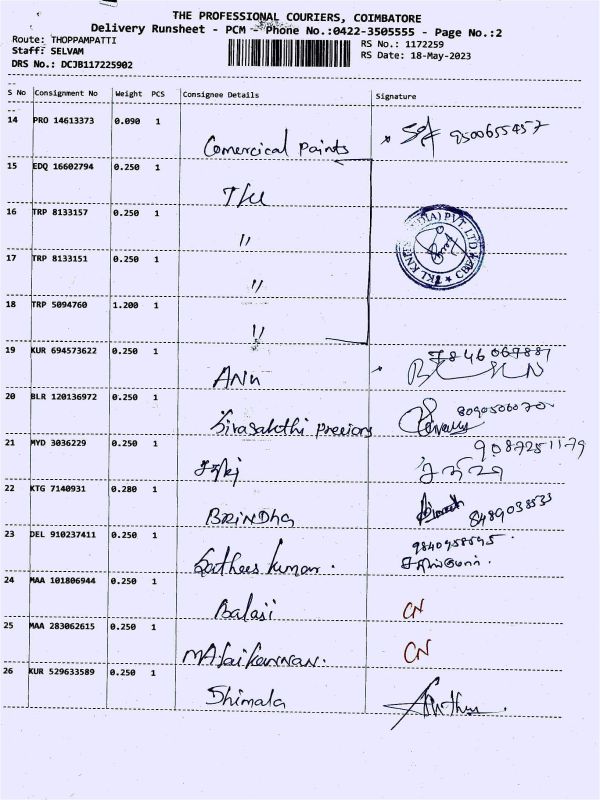 THE PROFESSIONAL COURIERS, COIMBATORE
Delivery Runsheet - PCM - Phone No.:0422-3505555 - Page No.:2
Route: THOPPAMPATTI RS No.: 1172259
Staff: SELVAM RS Date: 18-May-2023
DRS No.: DCJB117225902
S No Consignment No Weight PCS Consignee Details Signature
14 PRO 14613373 0.090 1 Comercical Paints 9500655457
15 EDQ 16602794 0.250 1
16 TRP 8133157 0.250 1 "
17 TRP 8133151 0.250 1 "
18 TRP 5094760 1.200 1 "
19 KUR 694573622 0.250 1 ANu 7846067887
20 BLR 120136972 0.250 1 Sivasakthi Precions
21 MYD 3036229 0.250 1 9087251179
22 KTG 7140931 0.280 1 BRINDha 8489038533
23 DEL 910237411 0.250 1 Sathees kumar. 9840958595
24 MAA 101806944 0.250 1 Balaji CN
25 MAA 283062615 0.250 1 CN
26 KUR 529633589 0.250 1 Shimala